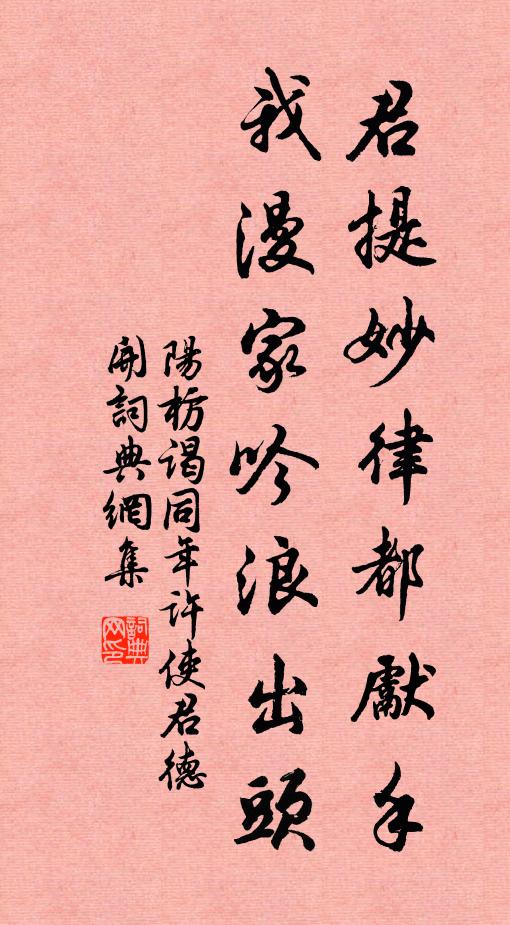 君提妙律都獻手
我漫家吟浪出頭
陽枋謁同年許使君德
開詞典網集
詞典
网印